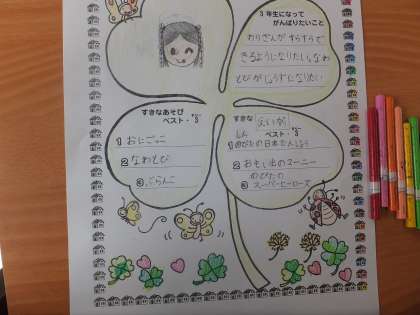 3年生になって
がんばりたいこと
わりざんがすらすらで
きるようになりたい。なわ
とびがじょうずになりたい
すきなあそび
ベスト・3
1 おにごっこ
2 なわとび
3 ぶらんこ
すきな えいが
ベスト・3
1 のびたの日本たんじょう
2 おもい出のマーニー
3 のびたの
スーパーヒーローズ